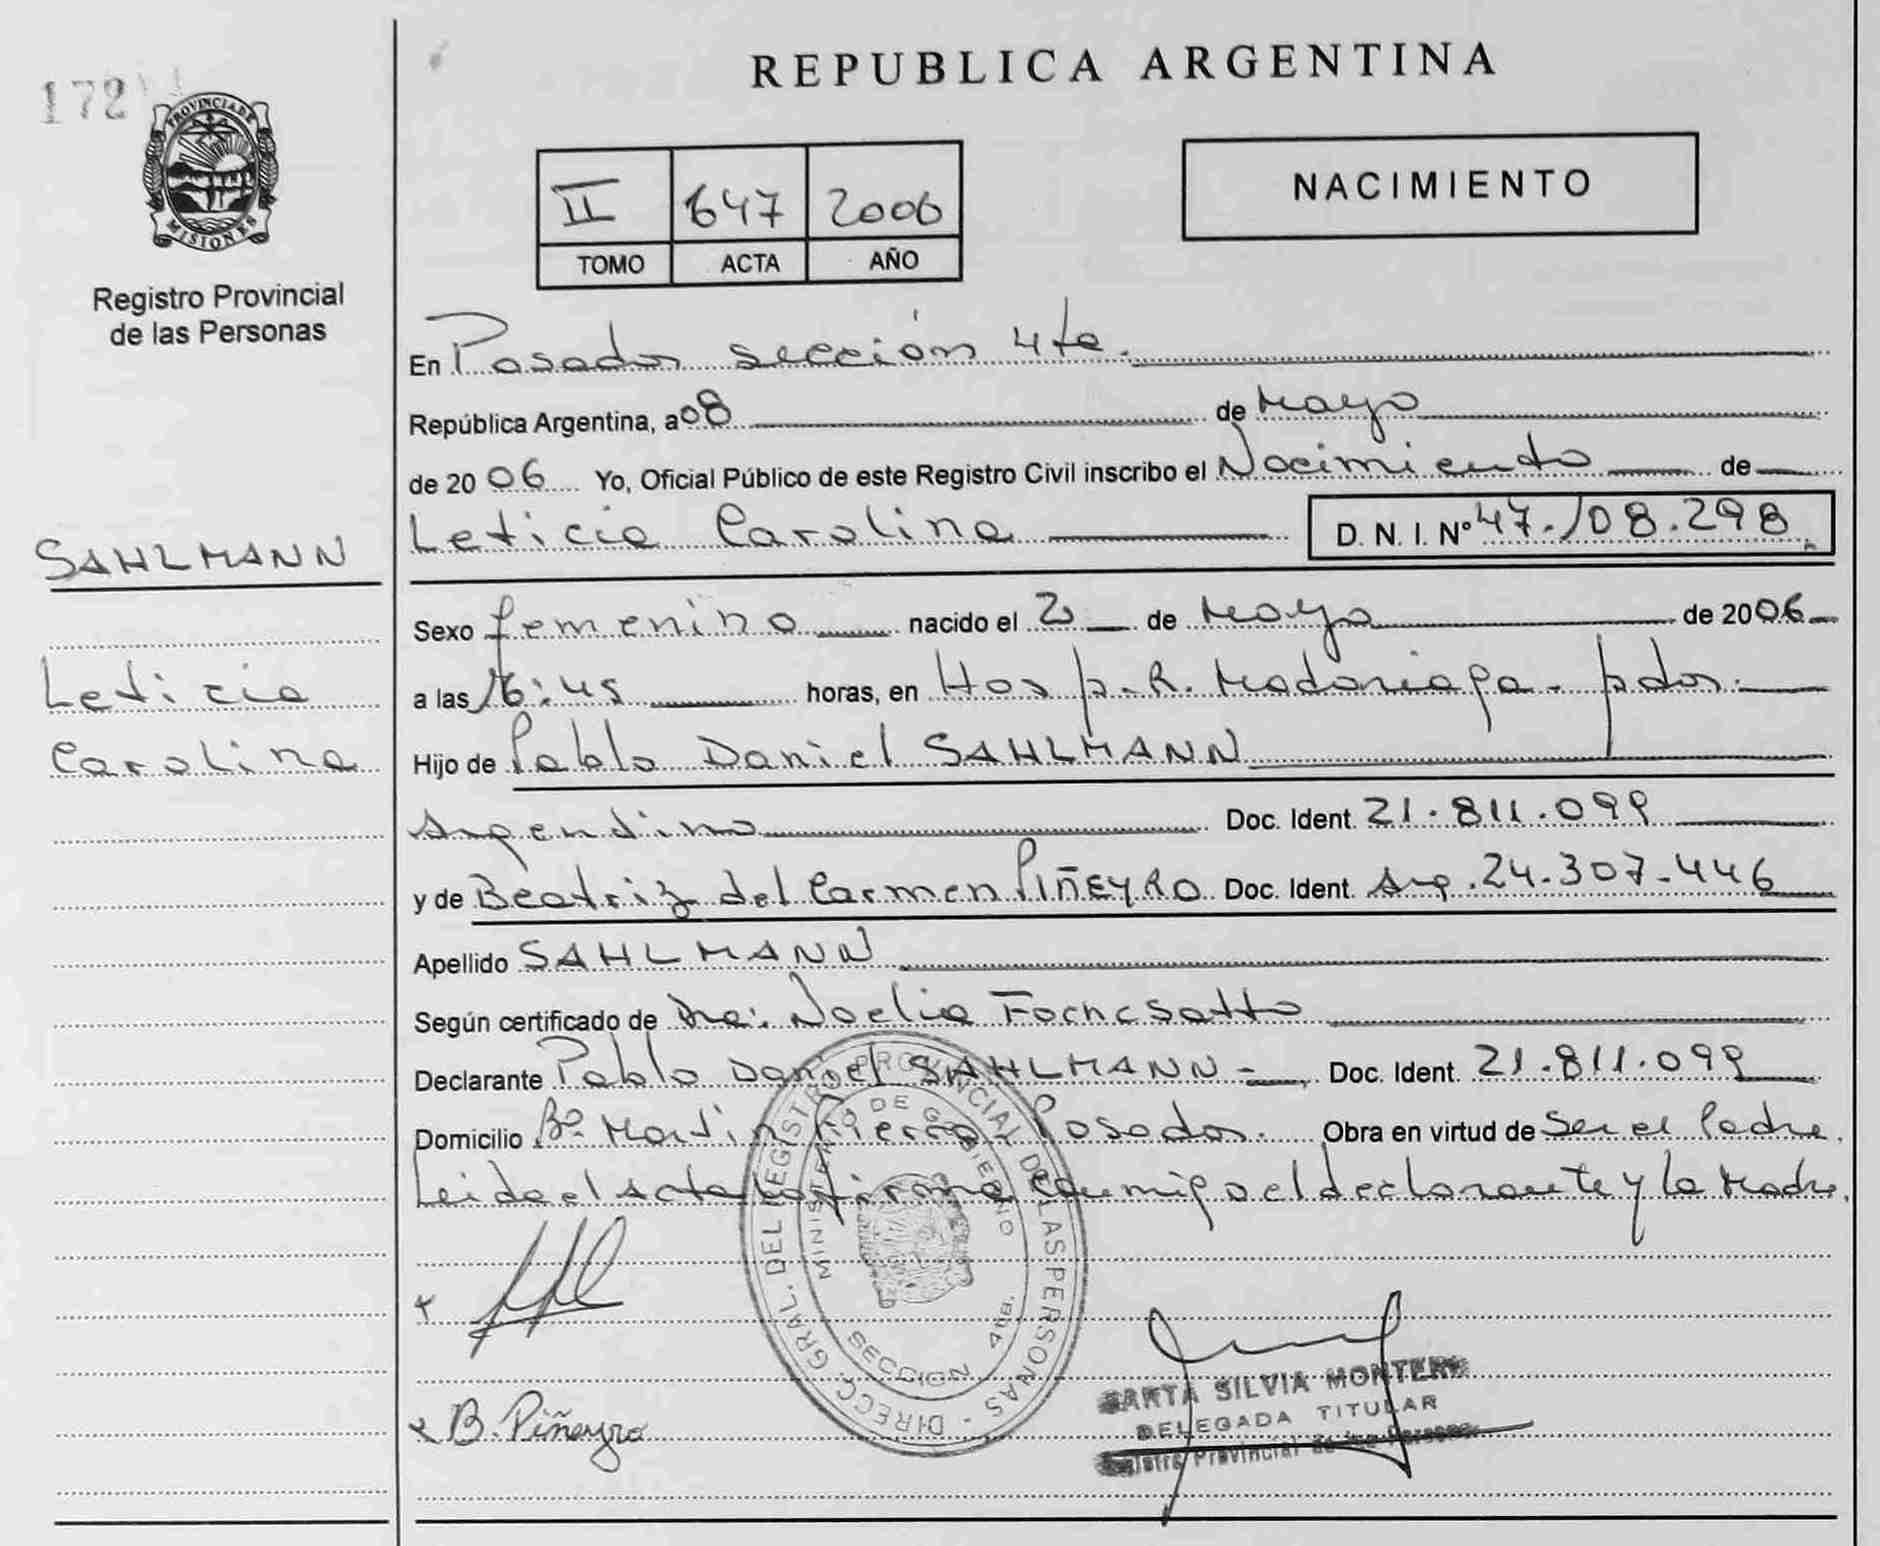 172
PROVINCIA DE
MISIONES
Registro Provincial
de las Personas
REPUBLICA ARGENTINA
II 647 2006
TOMO ACTA AÑO
NACIMIENTO
En Posadas sección 4ta.
República Argentina, a 08 de Mayo
de 2006 Yo, Oficial Público de este Registro Civil inscribo el Nacimiento de
Leticia Carolina D. N. I. Nº 47.108.298
SAHLMANN
Leticia
Carolina
Sexo femenino nacido el 2 de Mayo de 2006
a las 16:45 horas, en Hosp. R. Madariaga - pdas.
Hijo de Pablo Daniel SAHLMANN
Argentino Doc. Ident. 21.811.099
y de Beatriz del Carmen PIÑEYRO Doc. Ident. Arg. 24.307.446
Apellido SAHLMANN
Según certificado de Dra: Noelia
Declarante Pablo Daniel SAHLMANN Doc. Ident. 21.811.099
Domicilio Bº Martin Fierro - Posadas. Obra en virtud de Ser el Padre.
Leida el Acta la firma conmigo el declarante y la Madre.
DIRECC. GRAL. DEL REGISTRO PROVINCIAL DE LAS PERSONAS
MINISTERIO DE GOBIERNO
SECCION 4ta.
B. Piñeyro
SILVIA MONTERO
DELEGADA TITULAR
Provincial de las Personas